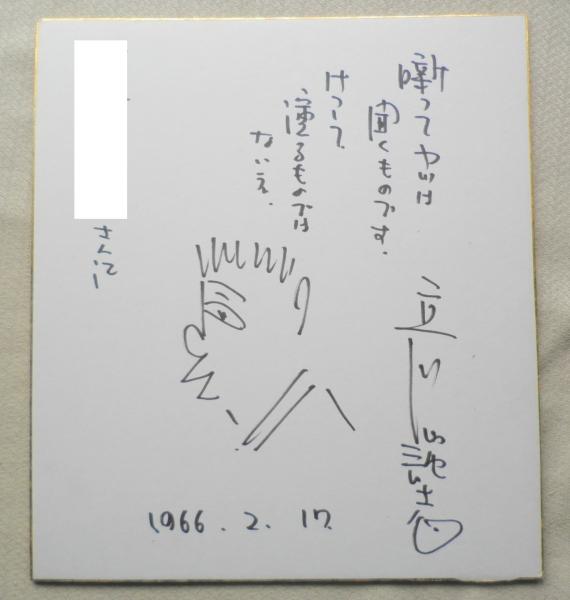 噺ってやつは
聞くものです.
けつして
演るものでは
ないえ.
立川談志
さんに
1966.2.17